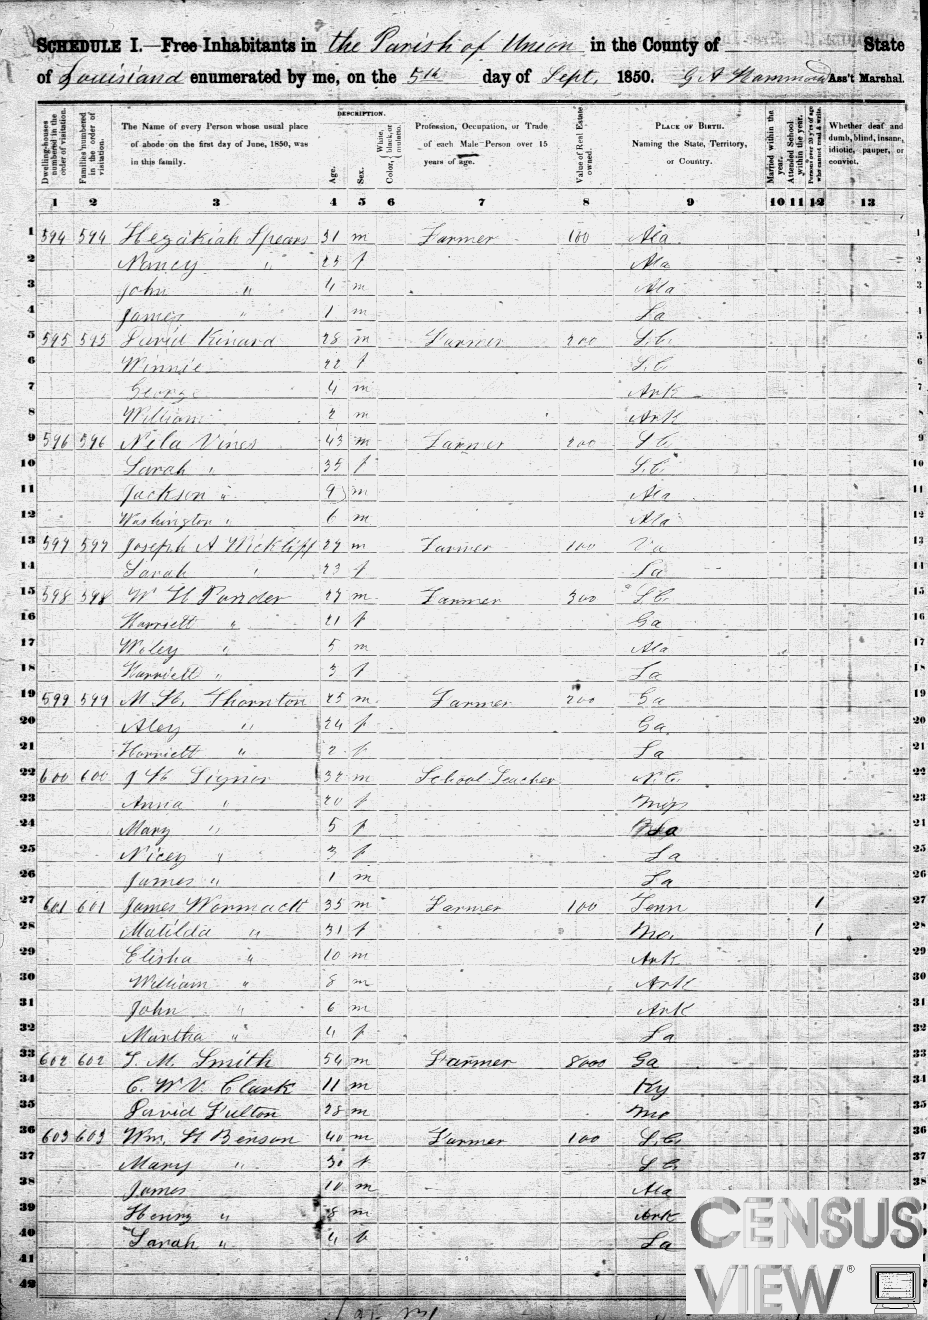 SCHEDULE I.—Free Inhabitants in the Parish of Union in the County of State
of Louisiana enumerated by me, on the 5th day of Sept, 1850. G A Hammond Ass't Marshal.
Dwelling-houses numbered in the order of visitation.
Families numbered in the order of visitation.
The Name of every Person whose usual place of abode on the first day of June, 1850, was in this family.
DESCRIPTION.
Age.
Sex.
Color, { White, black, or mulatto.
Profession, Occupation, or Trade of each Male Person over 15 years of age.
Value of Real Estate owned.
PLACE OF BIRTH. Naming the State, Territory, or Country.
Married within the year.
Attended School within the year.
Persons over 20 y'rs of age who cannot read & write.
Whether deaf and dumb, blind, insane, idiotic, pauper, or convict.
1 2 3 4 5 6 7 8 9 10 11 12 13
1 594 594 Hezakiah Spears 31 m Farmer 100 Ala 1
2 Nancy " 25 f Ala 2
3 John " 4 m Ala 3
4 James " 1 m La 4
5 595 595 David Kinard 28 m Farmer 200 S.C. 5
6 Winnie 22 f S.C 6
7 George 4 m Ark 7
8 William 2 m Ark 8
9 596 596 Vines 43 m Farmer 200 S C 9
10 Sarah " 35 f S.C. 10
11 Jackson " 9 m Ala 11
12 Washington " 6 m Ala 12
13 597 597 Joseph A Wickliff 27 m Farmer 100 Va 13
14 Sarah " 23 f La 14
15 598 598 W H Ponder 27 m Farmer 300 S.C. 15
16 Harriett " 21 f Ga 16
17 Wiley " 5 m Ala 17
18 Harriett " 3 f La 18
19 599 599 M H, Thornton 25 m Farmer 200 Ga 19
20 Aley " 24 f Ga. 20
21 Harriett " 2 f La 21
22 600 600 J H Signor 32 m School Teacher N.C. 22
23 Anna " 20 f Miss 23
24 Mary " 5 f La 24
25 Nicey " 3 f La 25
26 James " 1 m La 26
27 601 601 James Wormack 35 m Farmer 100 Tenn 1 27
28 Matilda " 31 f Mo. 1 28
29 Elisha " 10 m Ark 29
30 William " 8 m Ark 30
31 John " 6 m Ark 31
32 Martha " 4 f La 32
33 602 602 T. M. Smith 54 m Farmer 8000 Ga 33
34 C. W V. Clark 11 m Ky 34
35 David Fulton 28 m Mo 35
36 603 603 Wm. H Benson 40 m Farmer 100 S.C. 36
37 Mary " 30 f S C 37
38 James 10 m Ala 38
39 Henry " 8 m Ark
40 Sarah " 4 f La
41
42
CENSUS
VIEW®